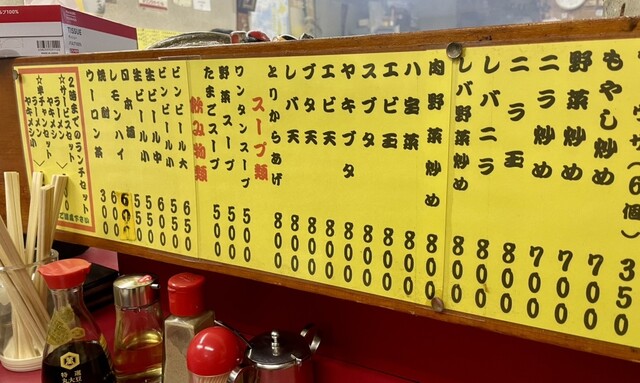 ザ(6個) 350
もやし炒め 700
野菜炒め 700
ニラ炒め 700
ニラ玉 800
レバニラ 800
レバ野菜炒め 800
肉野菜炒め 800
八宝菜 800
エビ玉 800
スブタ 800
ヤキブタ 800
エビ天 800
ブタ天 800
レバ天 800
とりからあげ 800
スープ類
ワンタンスープ 500
野菜スープ 550
たまごスープ 500
飲み物類
ビンビール大 650
ビンビール小 550
生ビール中 600
生ビール小 550
日本酒
レモンハイ
焼酎 600
ウーロン茶 300
2時までのランチセット
☆サービスセット
ラーメン
ヤキメシ小
ラーメン
ヤキメシ小